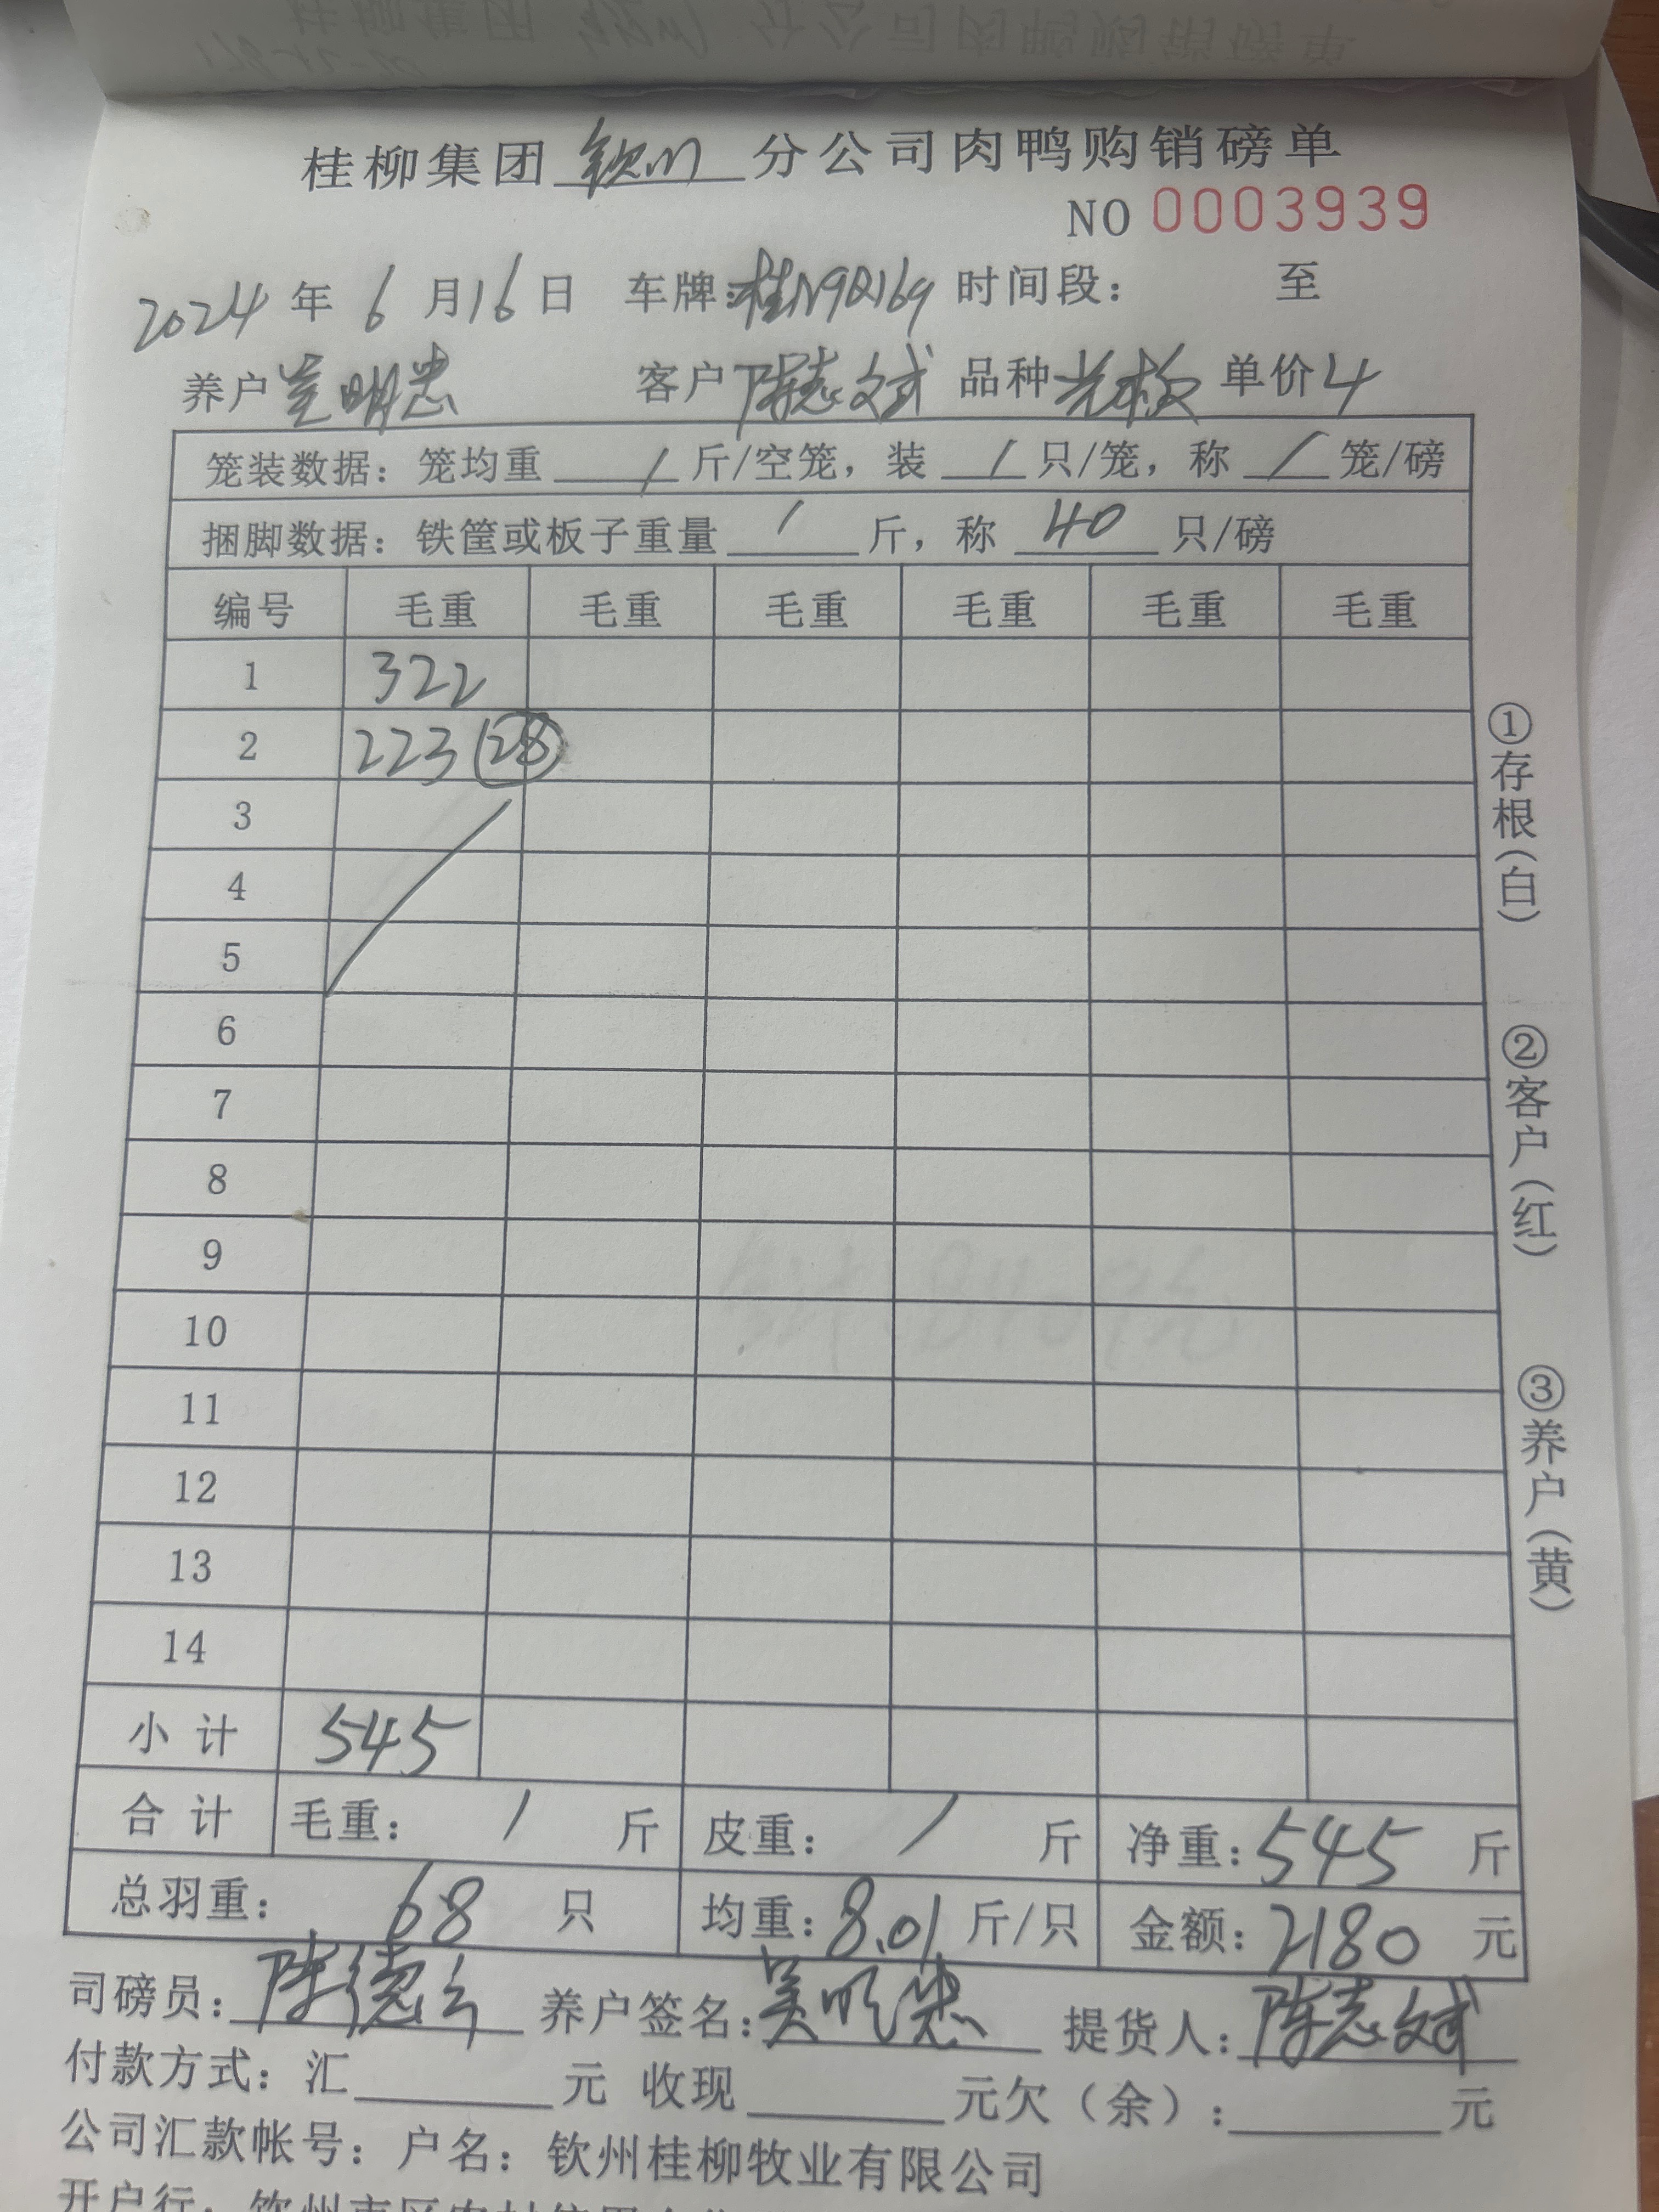 桂柳集团 钦州 分公司肉鸭购销磅单
NO 0003939
2024 年 6 月 16 日 车牌:桂N9Q169 时间段: 至
养户 吴明忠 客户 陈志斌 品种 光板 单价 4
笼装数据: 笼均重 / 斤/空笼, 装 / 只/笼, 称 / 笼/磅
捆脚数据: 铁筐或板子重量 / 斤, 称 40 只/磅
编号 毛重 毛重 毛重 毛重 毛重 毛重
1 322
2 223 (28)
3
4
5
6
7
8
9
10
11
12
13
14
小计 545
合计 毛重: / 斤 皮重: / 斤 净重: 545 斤
总羽重: 68 只 均重: 8.01 斤/只 金额: 2180 元
①存根(白) ②客户(红) ③养户(黄)
司磅员: 陈德 养户签名: 吴明忠 提货人: 陈志斌
付款方式: 汇 元 收现 元欠(余): 元
公司汇款帐号: 户名: 钦州桂柳牧业有限公司
开户行: 钦州市区农村信用